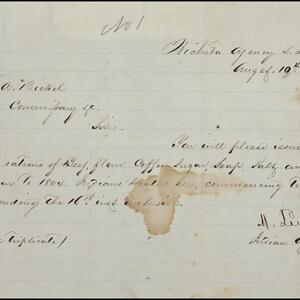 No 1
Wichita Agency L.
Augst 19th
Bickel
Commissary &c.
Sir,
You will please issue
rations of Beef, flour, Coffee, Sugar, Soap, Salt, an
to 1804 Indians
here, commencing
ending the 16th inst inclusive.
M. Lee
Indian